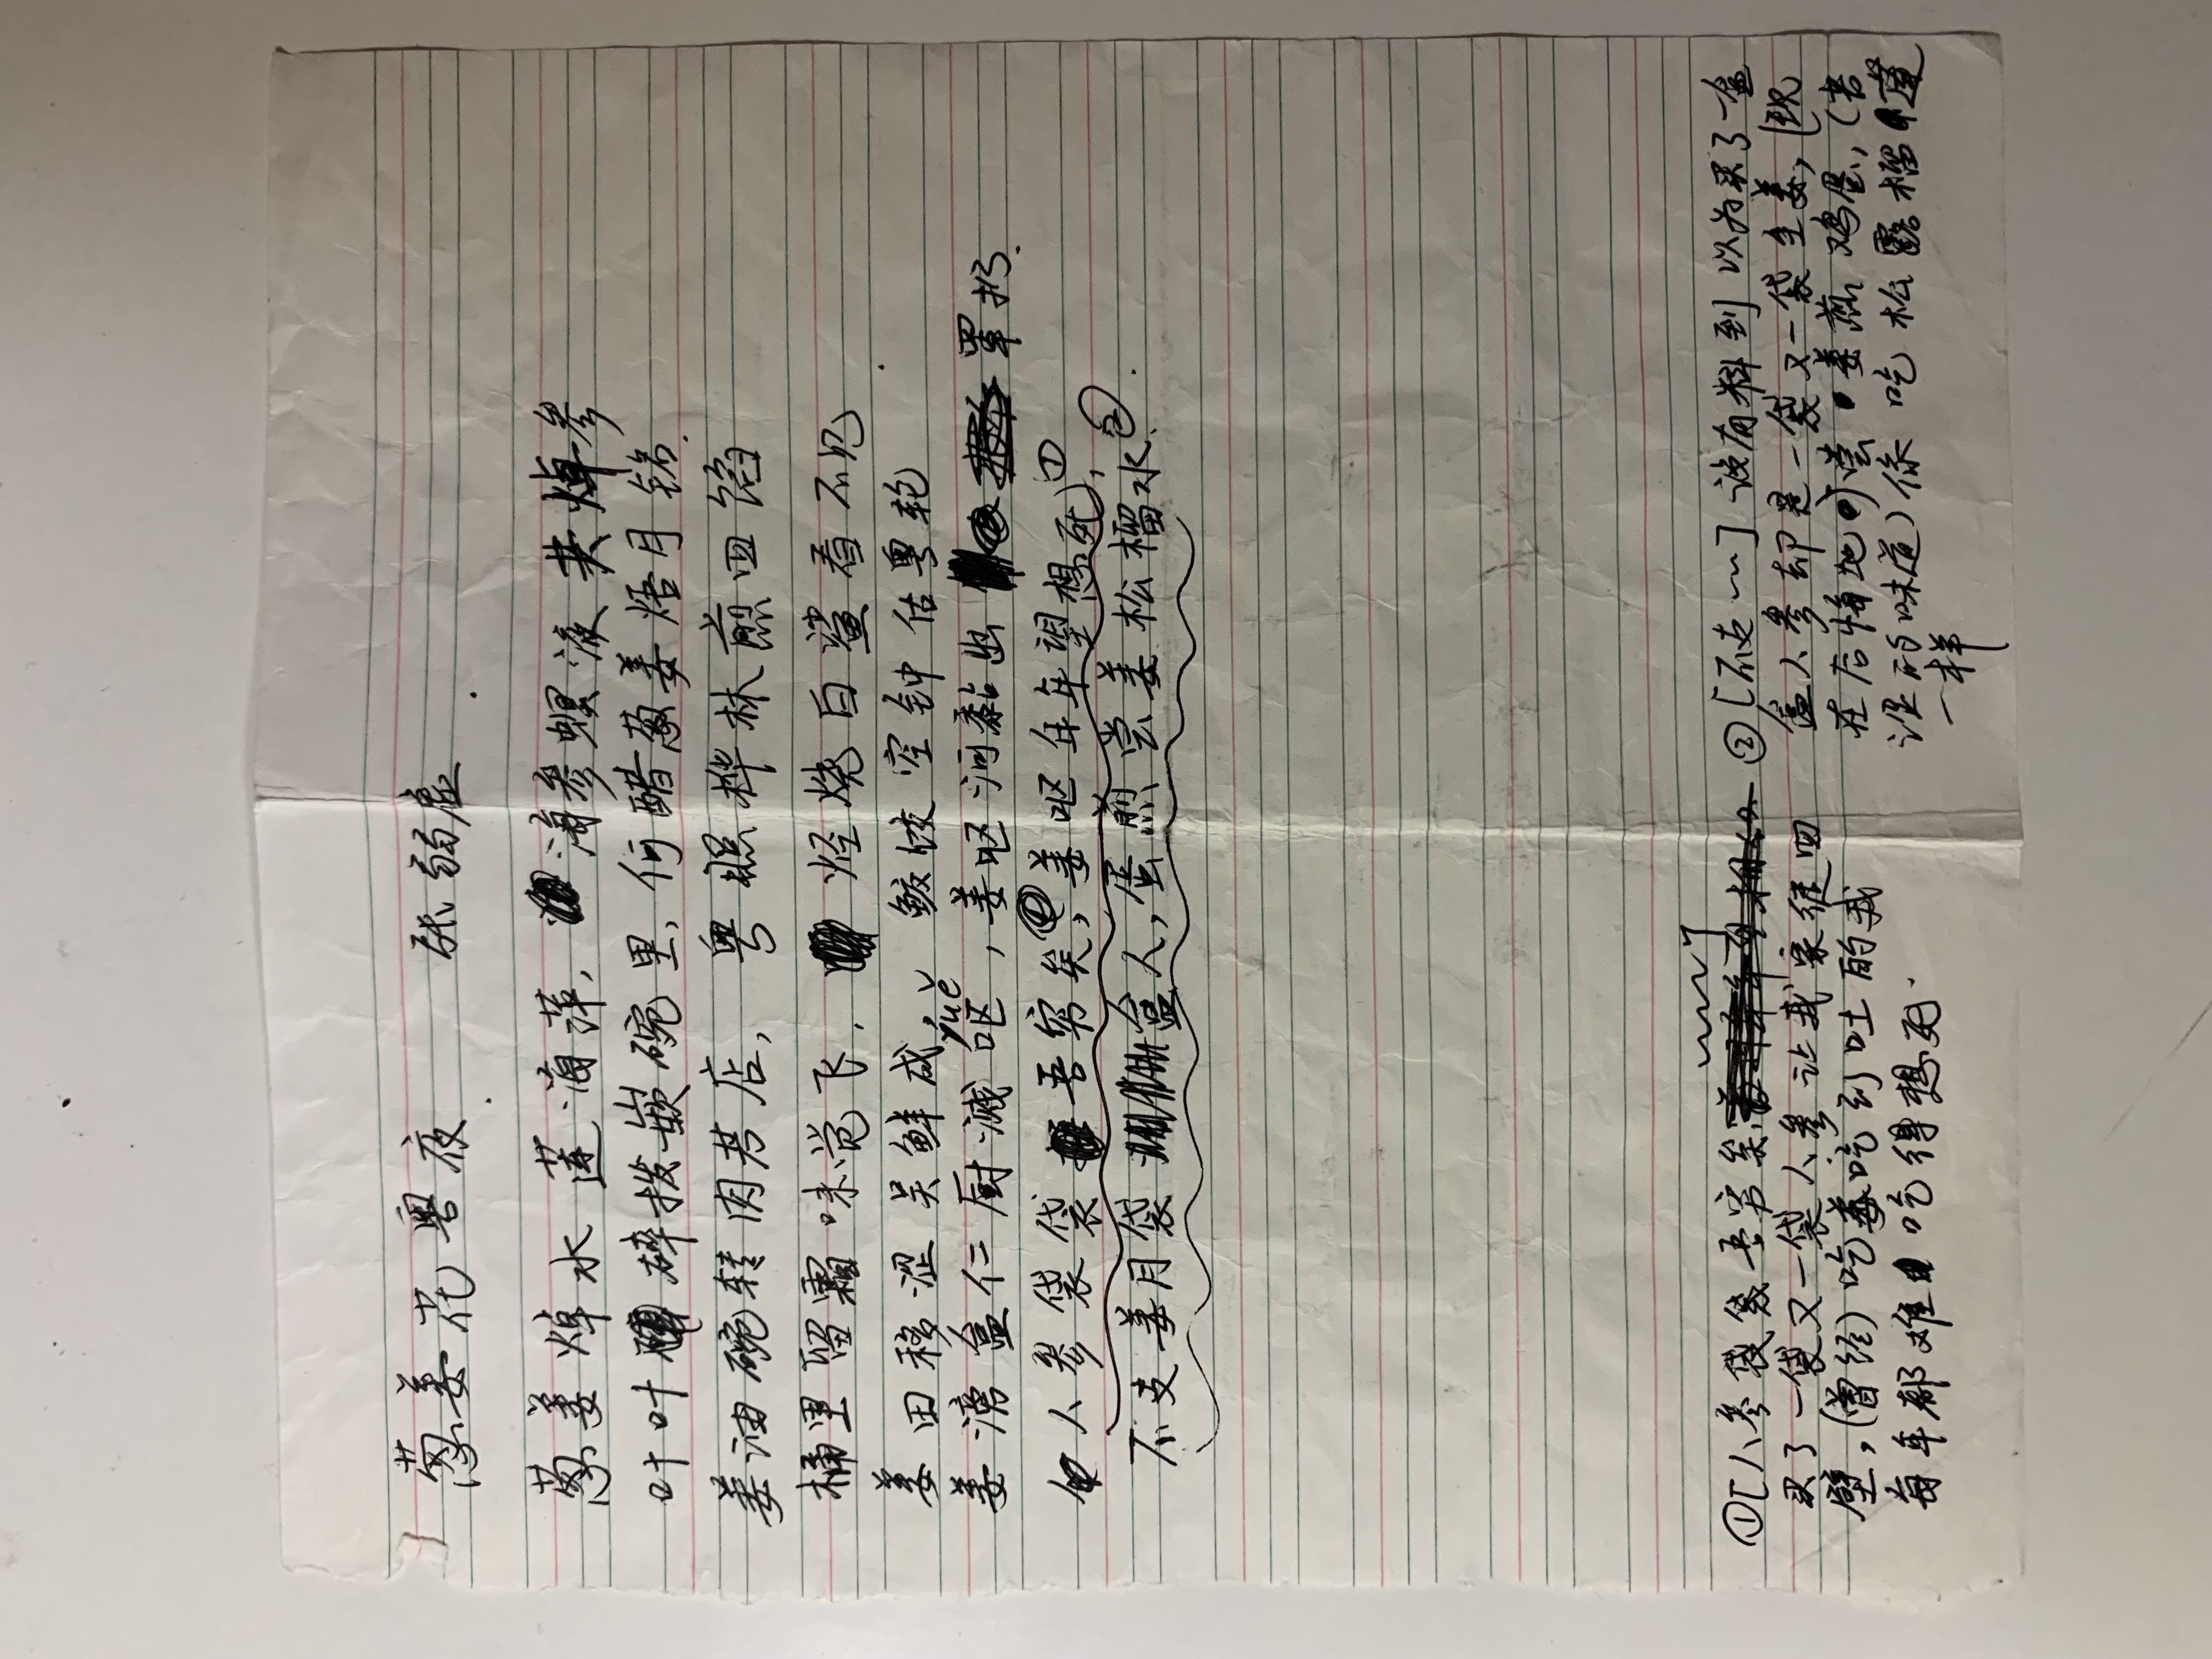 葱姜花粤夜 张弱虚
葱姜焯水莲海萍, 海参螟液共焯参
叶叶碎拨嵌碗里, 何醋葱姜焐月铭.
姜油碗转肉芳店, 粤照桦林煎皿馅
桶里留霜味觉飞. 烃烧白鲨看不见
姜田移涩吴鲜成, 鲛饺空钟估粤轮
yuě
姜滂盒仁厨溅呕, 姜呕河黏出罩扔.
人参袋袋吾穷矣, 姜呕年年望想死①,
不支姜月袋盒人, 蛋煎尝姜松榴水②.
①[人参袋袋吾穷矣 ]
买了一袋又一袋人参让我家徒四
壁, (曾经) 吃姜吃到吐的我
每年都难吃得想死.
②[不支……] 没有料到 以为买了一盒
盒人参却是一袋又一袋生姜, (现
在后悔地) 尝姜煎鸡蛋, (苦
涩的味道) 像吃松露榴莲
一样